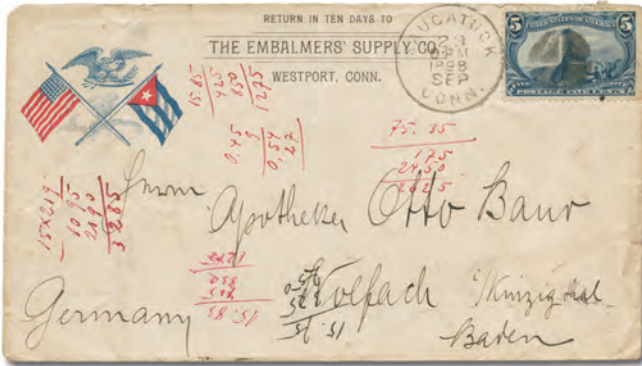 RETURN IN TEN DAYS TO
THE EMBALMERS' SUPPLY CO.
WESTPORT, CONN.
NAUGATUCK
23
PM
1898
SEP
CONN.
5 UNITED STATES OF AMERICA 5
POSTAGE FIVE CENTS
15.85
425
850
1275
0.45
9
0,54
27
75.35
175
2450
2625
15x219
1095
2190
3285
Herrn
Apotheker Otto Baur
Wolfach
Kinzigthal
Baden
Germany